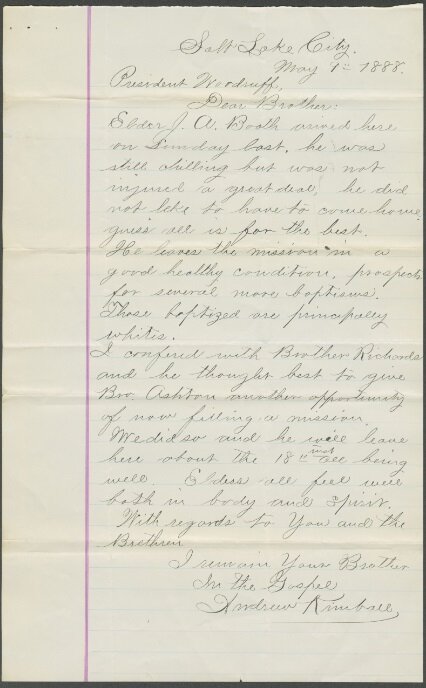 Salt Lake City.
May 9th 1888.
President Woodruff,
Dear Brother:
Elder J. A. Booth arived here
on Sunday last. he was
still chilling but was not
injured a great deal, he did
not like to have to come home,
guess all is for the best.
He leaves the mission in a
good healthy condition, prospects
for several more baptisms.
Those baptized are principally
whites.
I confered with Brother Richards
and he thought best to give
Bro. Ashton another opportunity
of now filling a mission.
We did so and he will leave
here about the 18th inst all being
well. Elders all feel well
both in body and spirit.
With regards to You and the
Brethren
I remain Your Brother
In the Gospel
Andrew Kimball